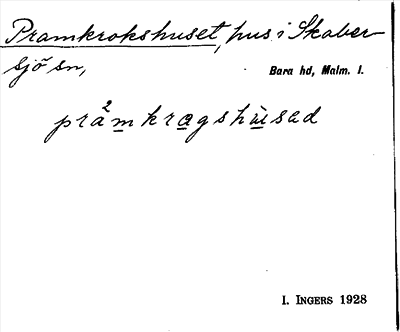 Pramkrokshuset, hus i Skaber-
sjö sn,
Bara hd, Malm. l.
prå²mkragshùsad
I. INGERS 1928